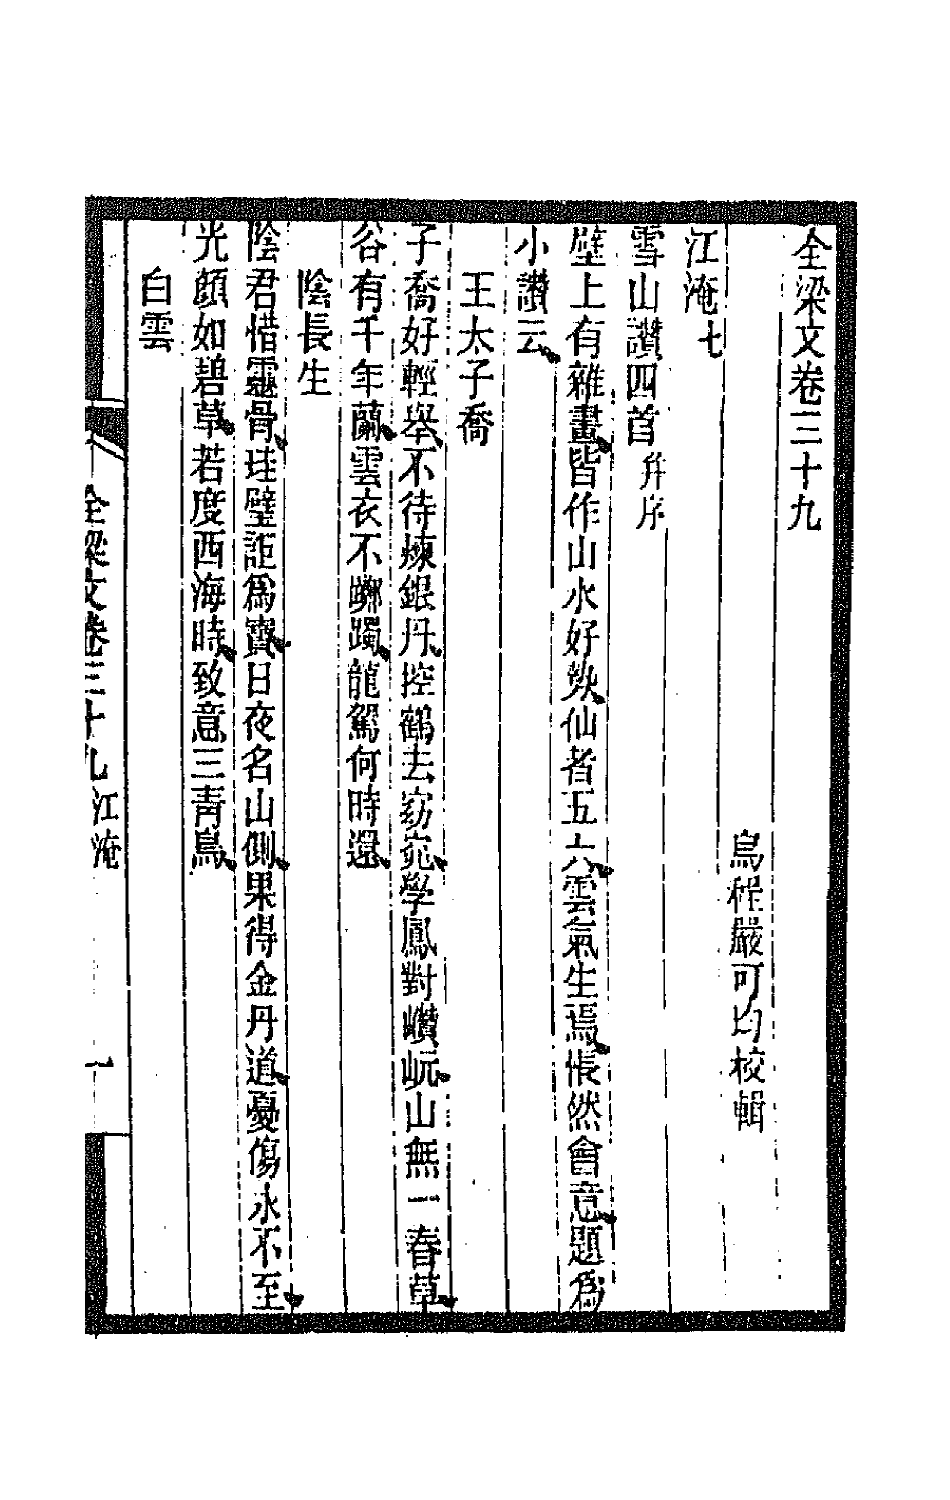 全梁文卷三十九
烏程嚴可均校輯
江淹七
雪山讚四首并序
壁上有雜畫皆作山水好勢仙者五六雲氣生焉悵然會意題爲
小讚云
王太子喬
子喬好輕舉不待煉銀丹控鶴去窈窕學鳳對巑岏山無一春草
谷有千年蘭雲衣不躑躅龍駕何時還
陰長生
陰君惜靈骨珪璧詎爲寶日夜名山側果得金丹道憂傷永不至
光顏如碧草若度西海時致意三靑鳥
白雲
全梁文卷三十九 江淹 一